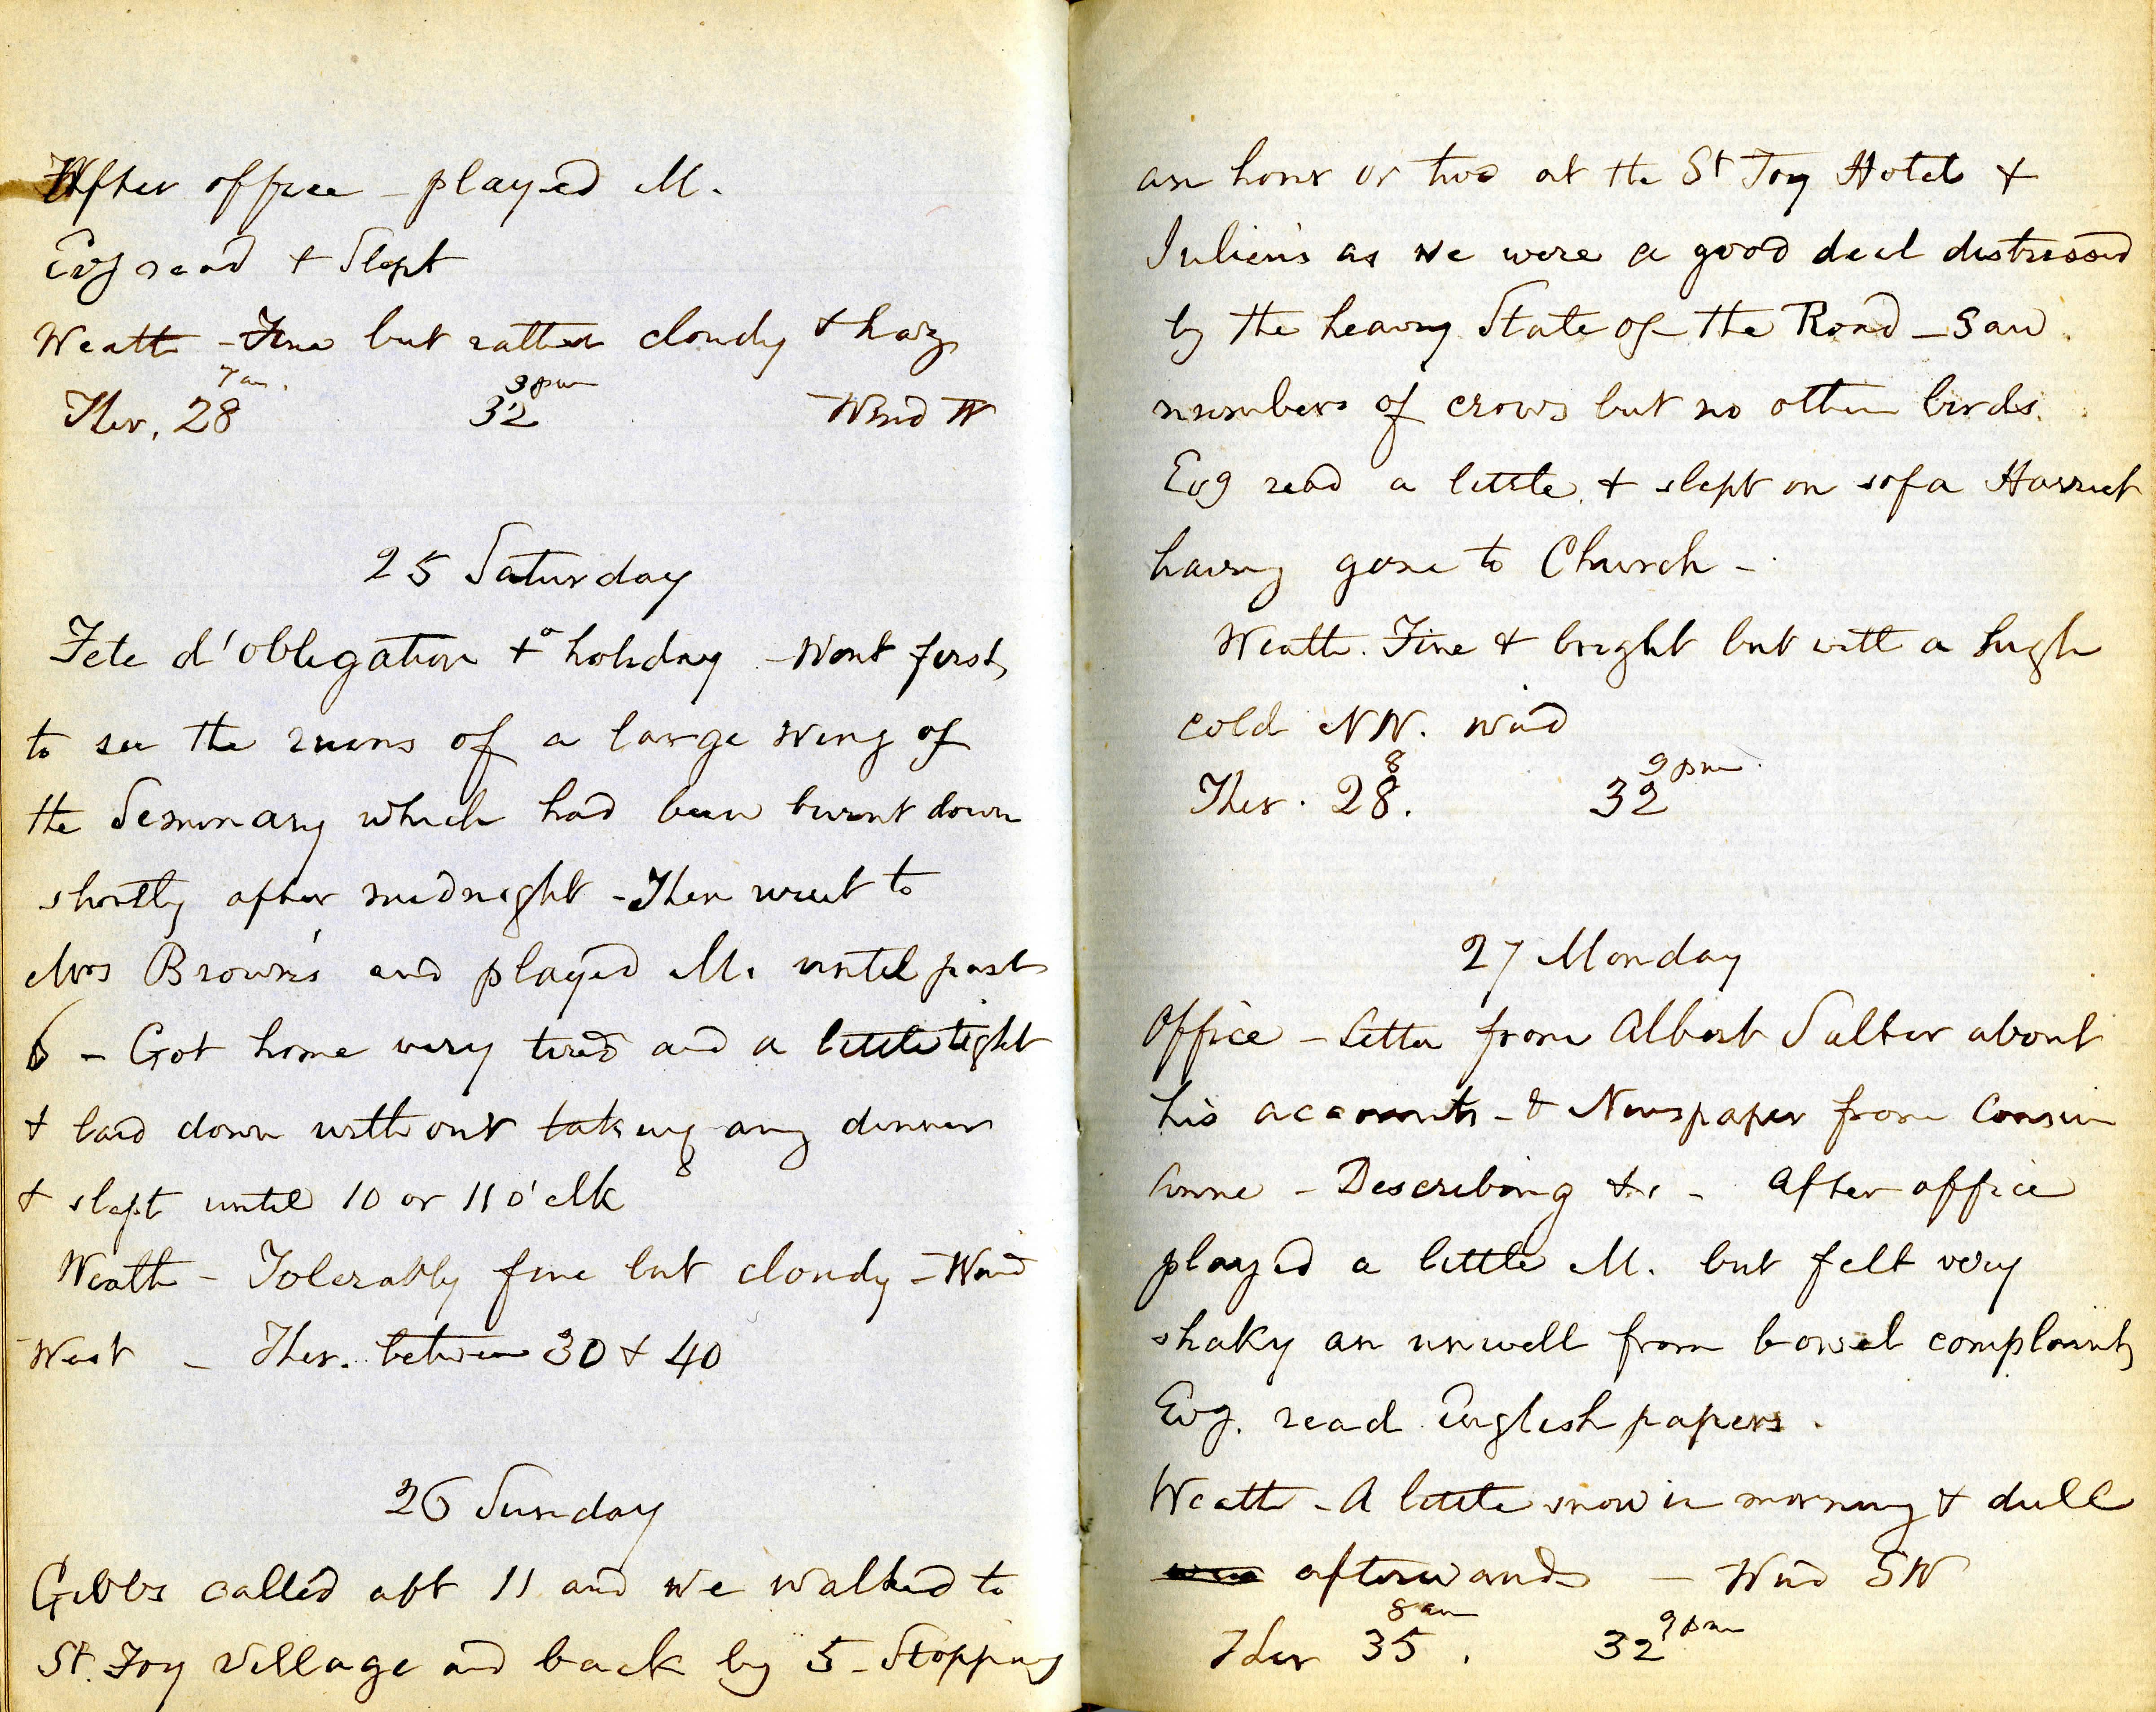 After office - played M.
Evg read + Slept
Weath - Fine but rather cloudy + hazy
7 am. 9 pm
Ther. 28 32 Wind W
25 Saturday
Fete d'obligation + a holiday - Went first
to see the ruins of a large wing of
the Seminary which had been burnt down
shortly after midnight - Then went to
Mrs Brown's and played M. until past
6 - Got home very tired and a little tight
+ laid down without taking any dinner
+ slept until 10 or 11 o'clk
Weath - Tolerably fine but cloudy - Wind
West - Ther. between 30 + 40
26 Sunday
Gibbs called abt 11 and we walked to
St. Foy village and back by 5 - Stopping
an hour or two at the St Foy Hotel +
Julien's as we were a good deal distressed
by the heavy State of the Road - Saw
numbers of crows but no other birds.
Evg read a little + slept on sofa Harriet
having gone to Church -
Weath. Fine + bright but with a high
cold NW. wind
8 9 pm
Ther. 28. 32
27 Monday
Office - Letter from Albert Salter about
his accounts - + Newspaper from Cousin
Anne - Describing &c - After office
played a little M. but felt very
shaky an unwell from bowel complaint
Evg. read English papers.
Weath - A little snow in morning + dull
afterwards - Wind SW
8 am 9 pm
Ther 35. 32